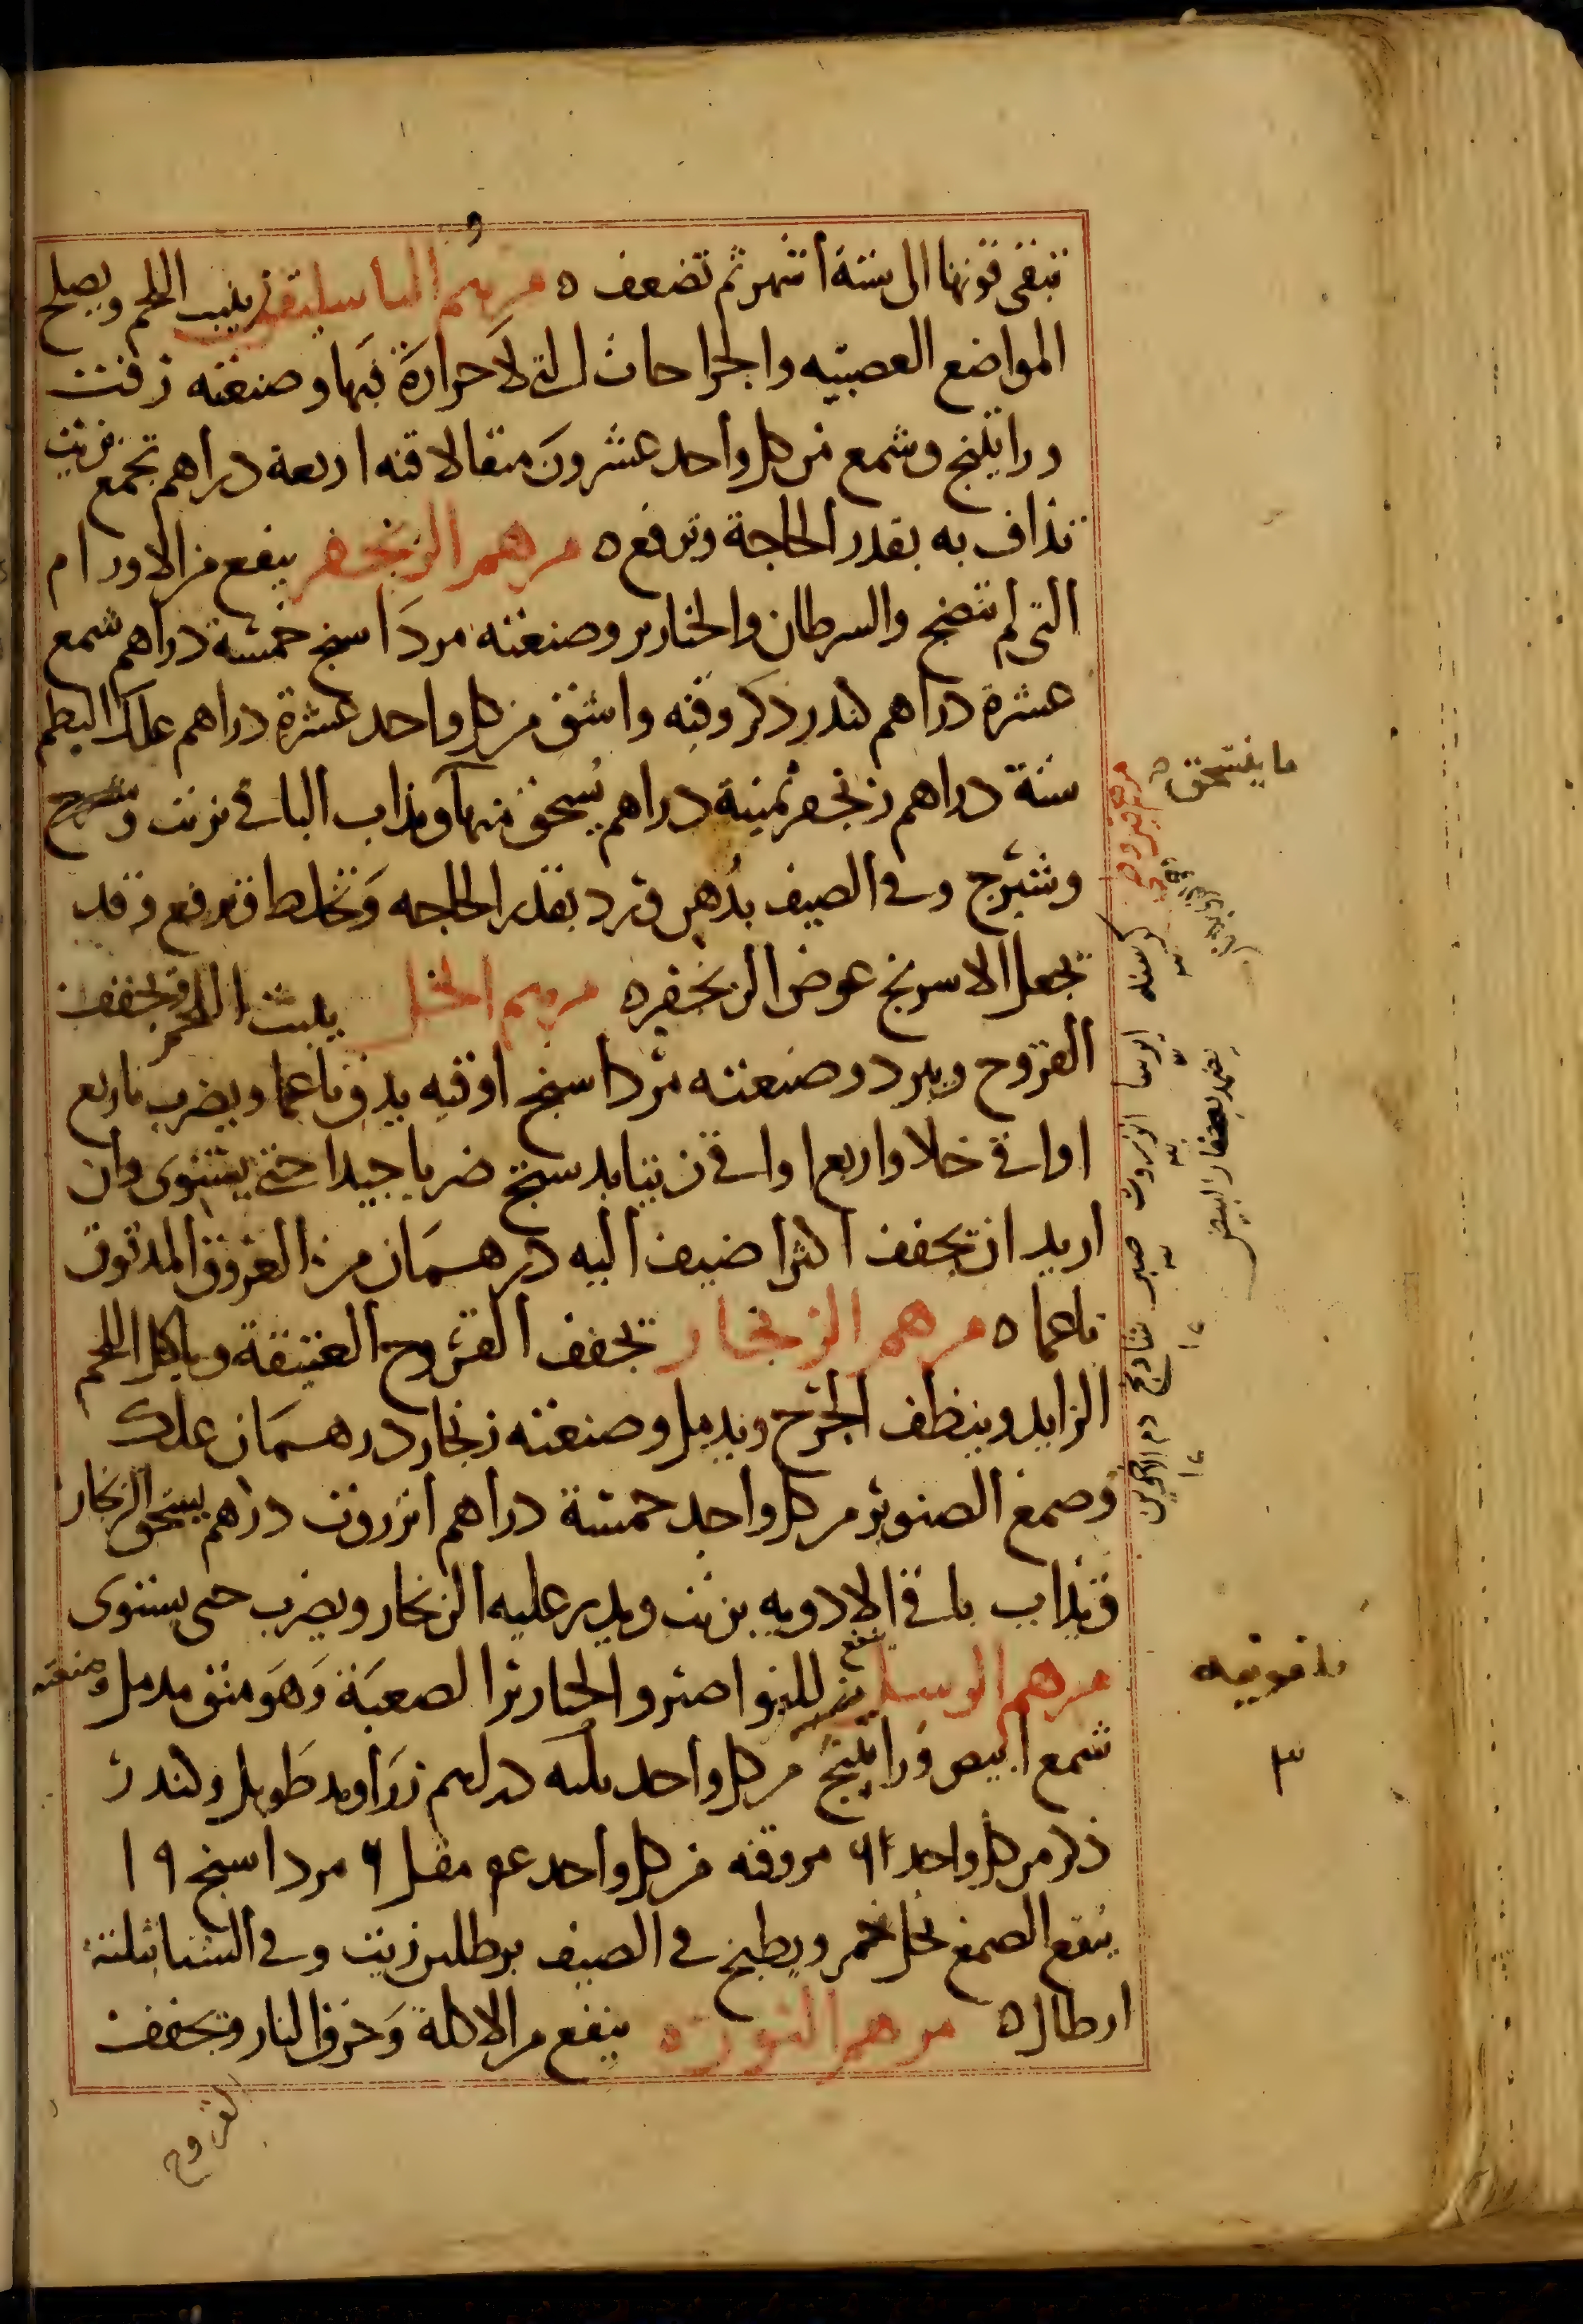 تبقى قوتها الى ستة أشهر ثم تضعف ه مرهم الباسليقون ينبت اللحم ويصلح
المواضع العصبيه والجراحات التى لا حرارة فيها وصنعته زفت
وراتينج وشمع من كل واحد عشرون مثقالا قنه اربعة دراهم تجمع بزيت
تذاف به بقدر الحاجة وترفع ه مرهم الزنجفر ينفع من الاورام
التى لم تنضج والسرطان والخنازير وصنعته مرداسنج خمسة دراهم شمع
عشرة دراهم كندر ذكر وقنه واشق من كل واحد عشرة دراهم علك البطم
ستة دراهم زنجفر ثمنية دراهم يسحق منها ويذاب الباقى بزيت
وشيرج وفى الصيف بدهن ورد بقدر الحاجه وتخلط وترفع وقد
تجعل الاسرنج عوض الزنجفر ه مرهم الخل ينبت اللحم ويجفف
القروح ويبرد وصنعته مرداسنج اوقيه يدق ناعما ويضرب باربع
اواقى خلا واربع اواقى زيتا بدستج ضربا جيدا حتى يستوى وان
اريد ان تجفف اكثر اضيف اليه درهمان من العروق المدقوق
ناعما ه مرهم الزنجار تجفف القروح العتيقة وياكل اللحم
الزايد وينظف الجرح ويدمل وصنعته زنجار درهمان علك
وصمغ الصنوبر من كل واحد خمسة دراهم انزروت دراهم يسحق الزنجار
ويذاب باقى الادويه بزيت ويدر عليه الزنجار ويضرب حتى يستوى
مرهم الرسل ينفع للنواصير والخنازير الصعبة وهو منق مدمل وصنعته
شمع ابيض وراتينج من كل واحد دراهم زراوند طويل وكندر
ذكر من كل واحد وقنه من كل واحد مقل ٦ مرداسنج ٩
ينقع الصمغ بخل خمر ويطبخ فى الصيف برطلين زيت وفى الشتا بثلثة
ارطال ه مرهم النورة ه ينفع من الاكلة وحرق النار وتجفف
القروح
ما ينسحق
كرسنه ايرسا انزروت صبر شاذنج دم الاخوين
يضمد ببياض البيض